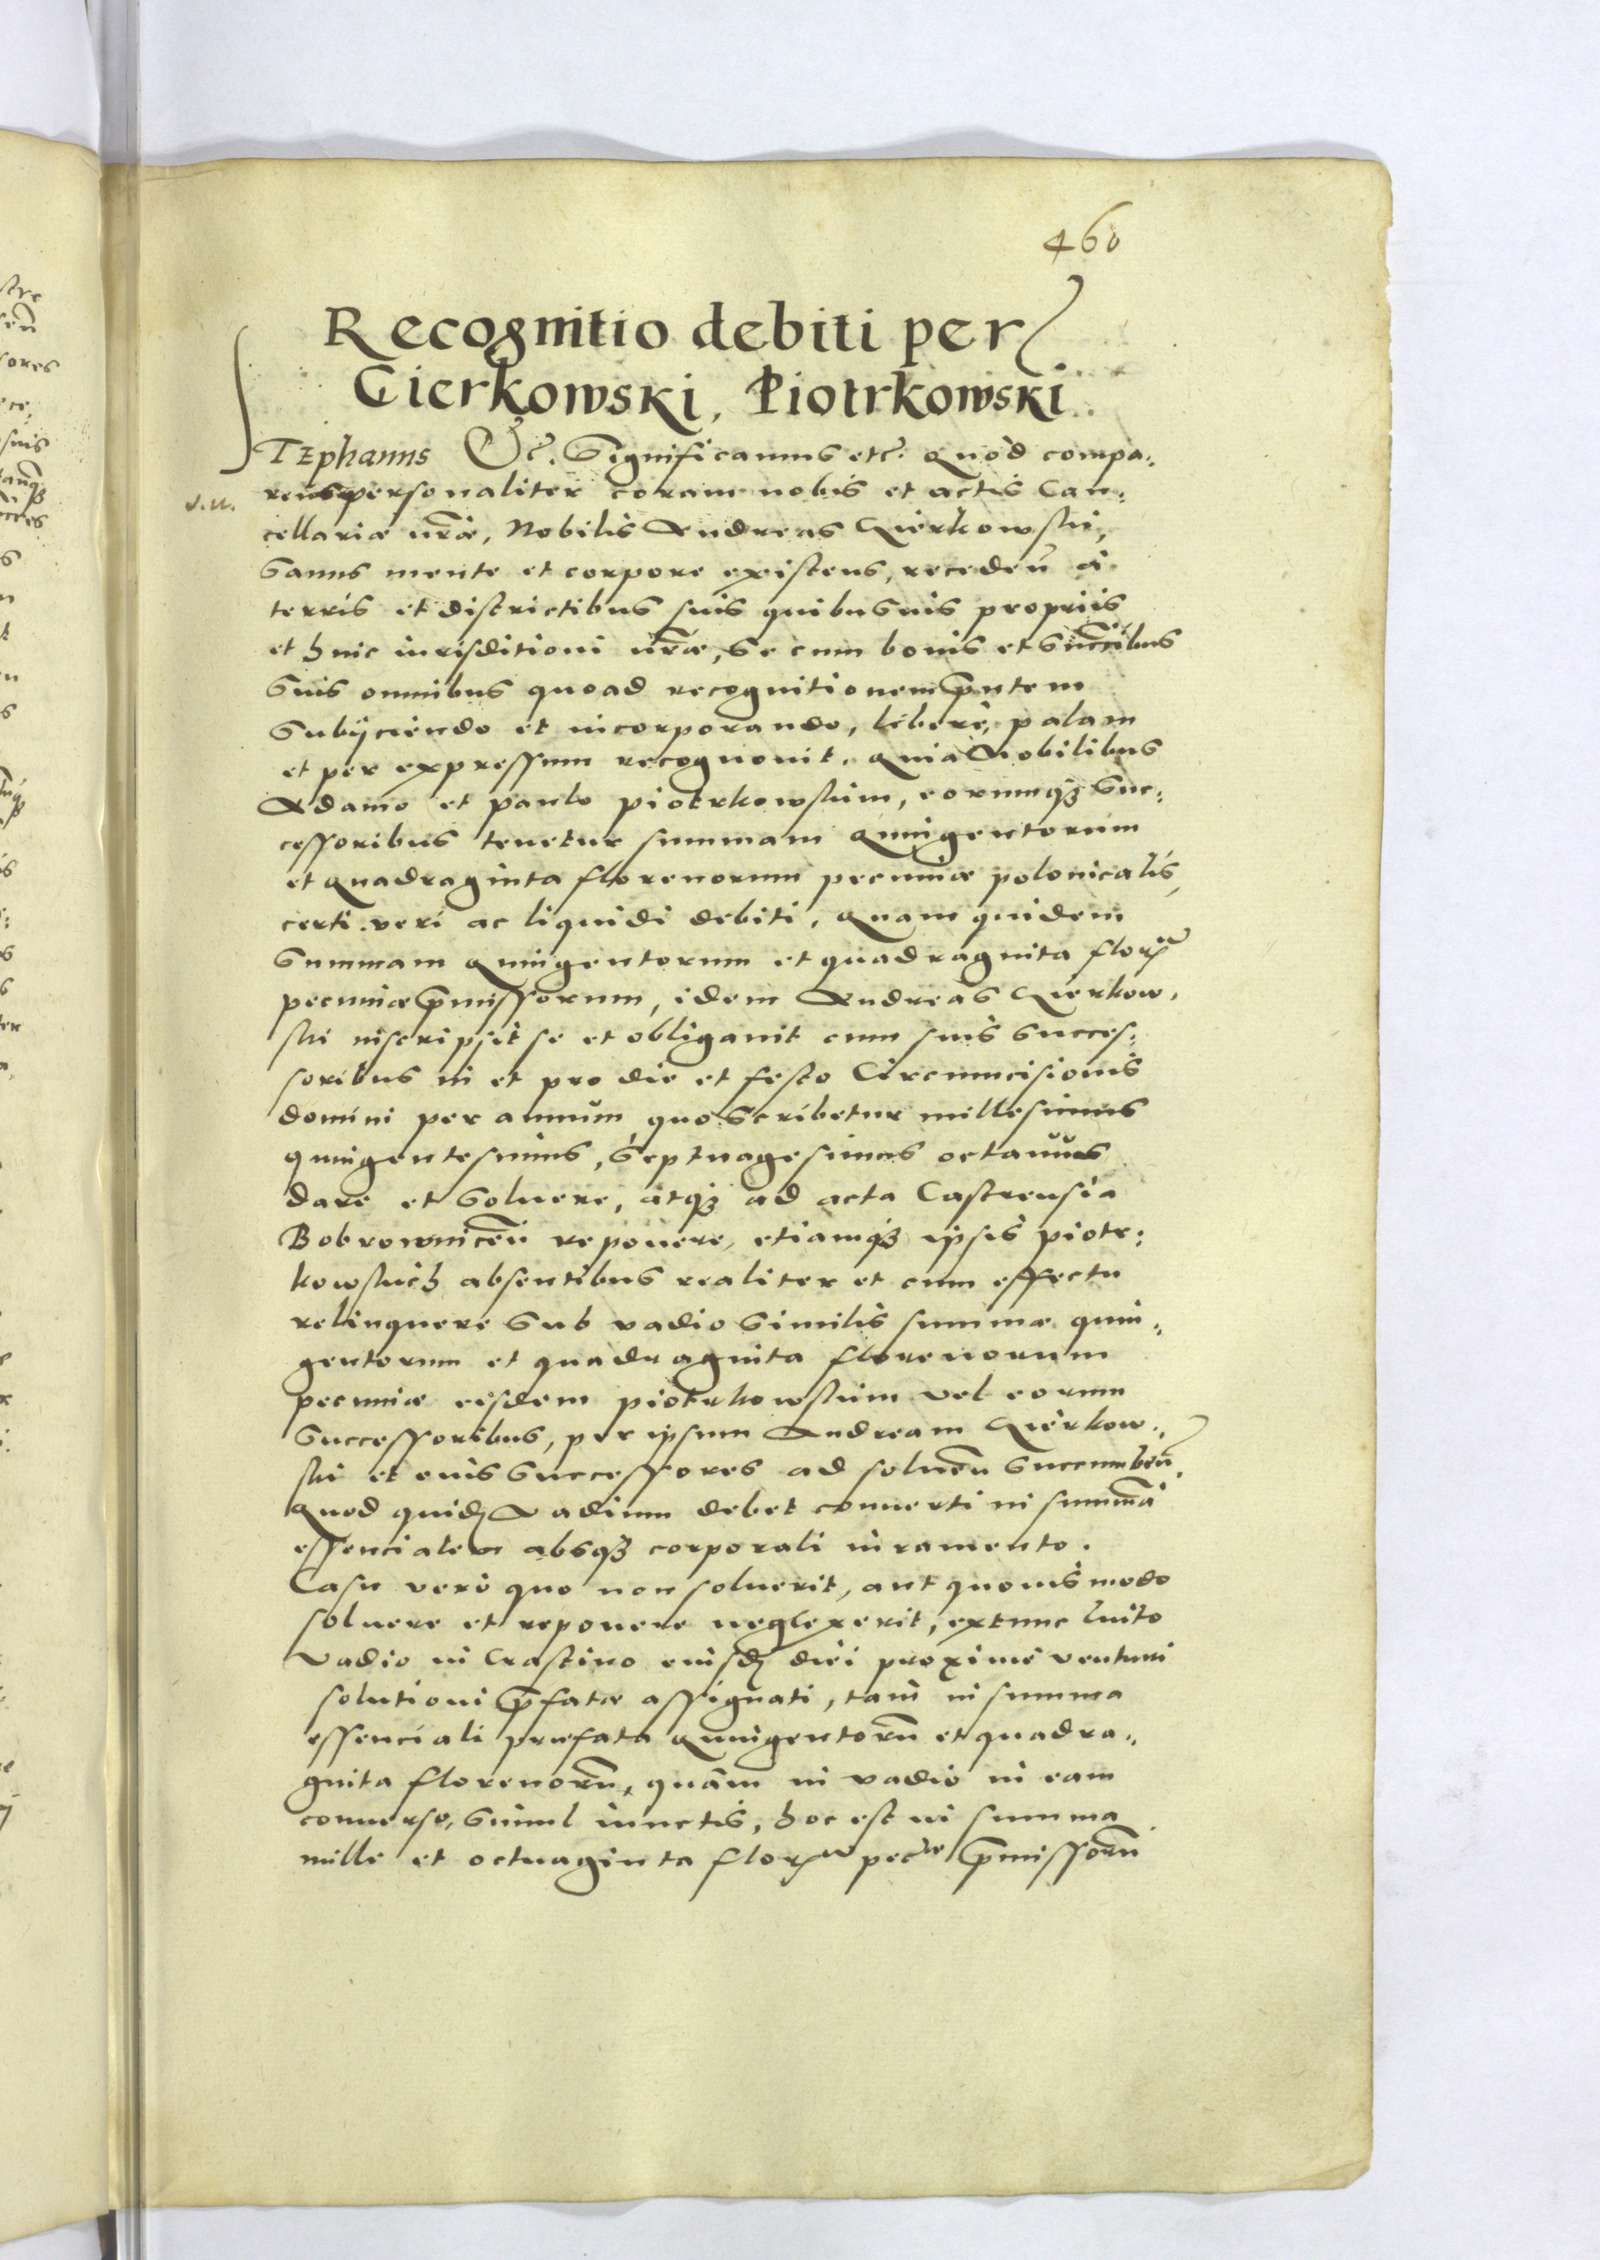 460
Recognitio debiti per
Gierkowski, Piotrkowski
STEphanus Etc. Significamus etc. Quòd compa-
rens personaliter coram nobis et actis Can-
cellariæ nr̃æ, Nobilis Andreas Gierkowski,
Sanus mente et corpore existens, receden̄ à
terris et districtibus suis quibusuis propriis
et huic iurisditioni nr̃æ, Se cum bonis et Succc̃ibus
Suis omnibus quoad recognitionem p̃ntem
Subijciendo et incorporando, liberè, palam
et per expressum recognouit. Quia Nobilibus
Adamo et paulo piotrkowskim, eorumq₃ Suc-
cessoribus tenetur summam Quingentorum
et Quadraginta florenorum pecuniæ polonicalis,
certi. veri ac liquidi debiti. Quam quidem
Summam Quingentorum et quadraginta flor̃
pecuniæ p̃missorum, idem Andreas Gierkow-
ski inscripsit se et obligauit cum suis Succes-
soribus in et pro die et festo Circumcisionis
domini per annum, quo Scribetur millesimus
quingentesimus, Septuagesimus octauus
dare et Soluere, atq₃ ad acta Castrensia
Bobrownicen̄ reponere, etiamq₃ ipsis piotr-
kowskich absentibus realiter et cum effectu
relinquere Sub vadio Similis summæ quin-
gentorum et quadraginta florenorum
pecuniæ eisdem piotrkowskim vel eorum
Successoribus, per ipsum Andream Gierkow-
ski et eius Successores ad soluen̄ Succumben̄.
Quod quid₃ Vadium debet conuerti in summã
essencialem absq₃ corporali iuramento.
Casu verò quo non soluerit, aut quouis modo
soluere et reponere neglexerit, extunc luito
Vadio in Crastino eiusd₃ diei proximè venturi
solutioni p̃fatæ assignati, tam in summa
essenciali præfata Quingentorũ et quadra-
ginta florenorũ, quàm in vadio in eam
conuerso, Simul iunctis, hoc est in summa
mille et octuaginta flor̃ pecuæ p̃missorũ